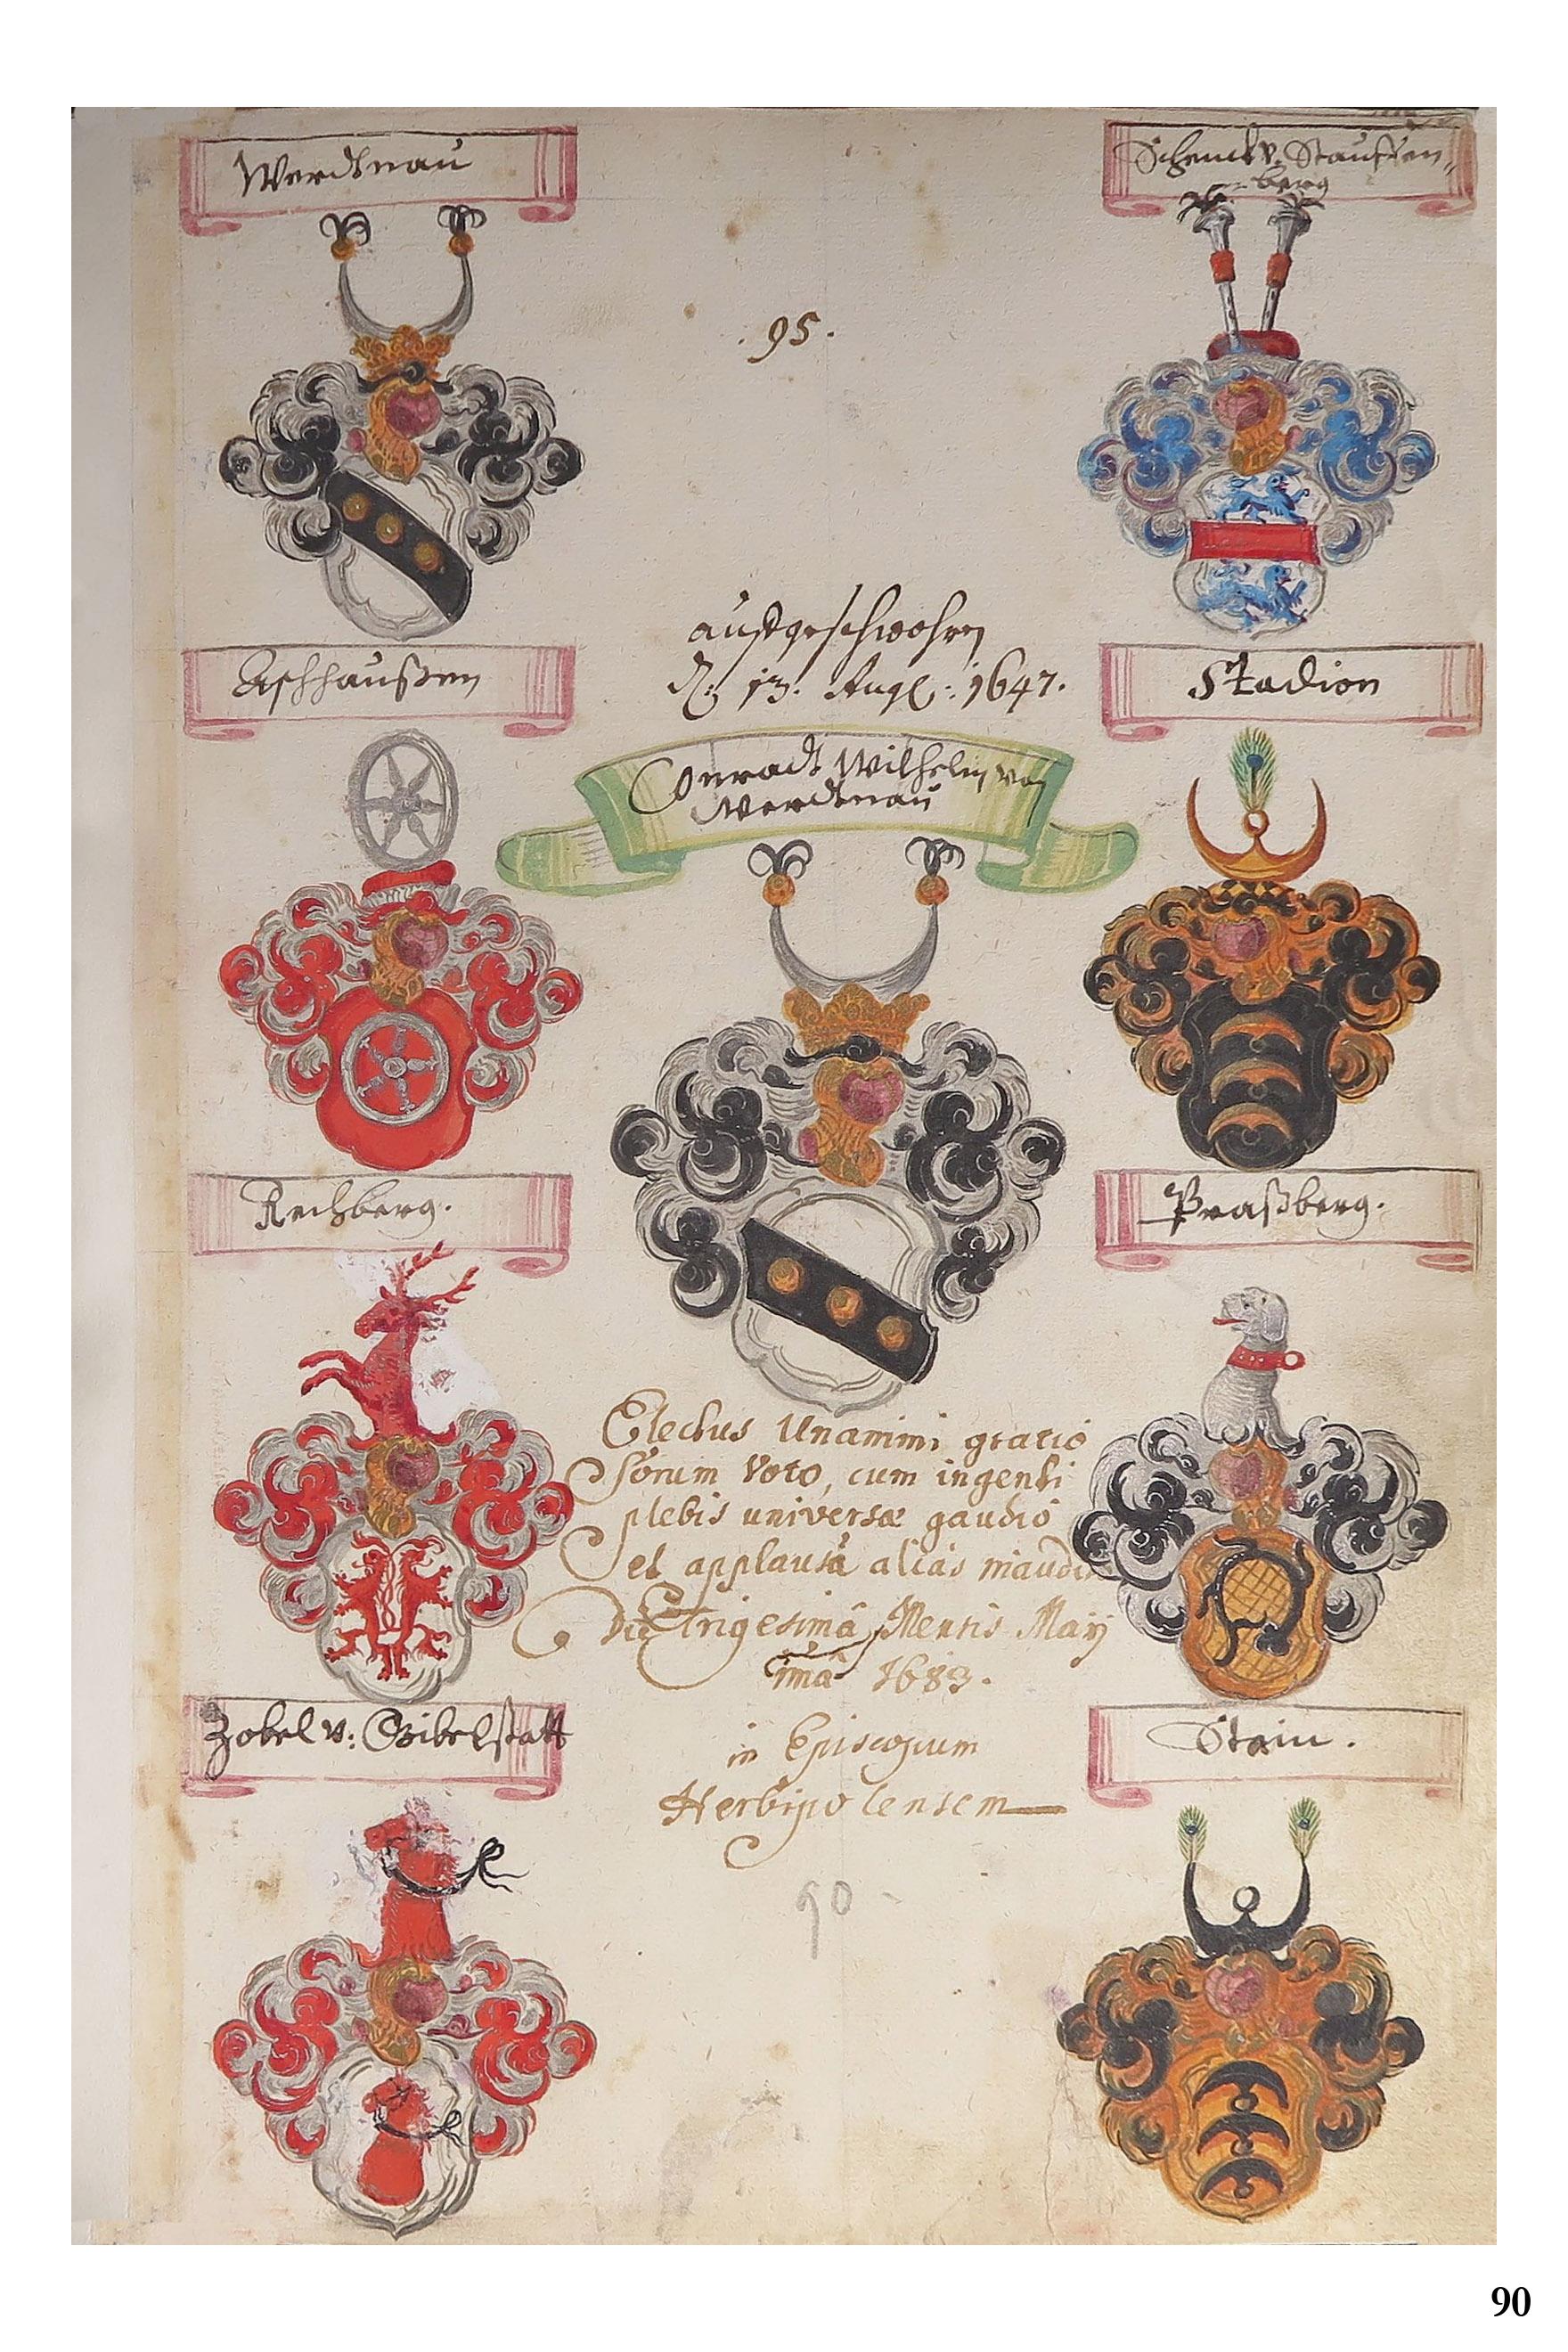 Werdtnau
Schenck v. Stauffen,,
berg
. 95 .
auffgeschwohren
d. 13. Aug: 1647.
Aschhaußen
Stadion
Conradt Wilhelm von
Werdtnau
Rechberg.
Praßberg.
Electus Unanimi gratio
sorum Voto, cum ingenti
plebis universæ gaudio
et applausu alias
Die trigesimâ Mensis Maij
imâ 1683.
in Episcopum
Herbipolensem
Zobel v: Gibelstatt
Stain.
90
90